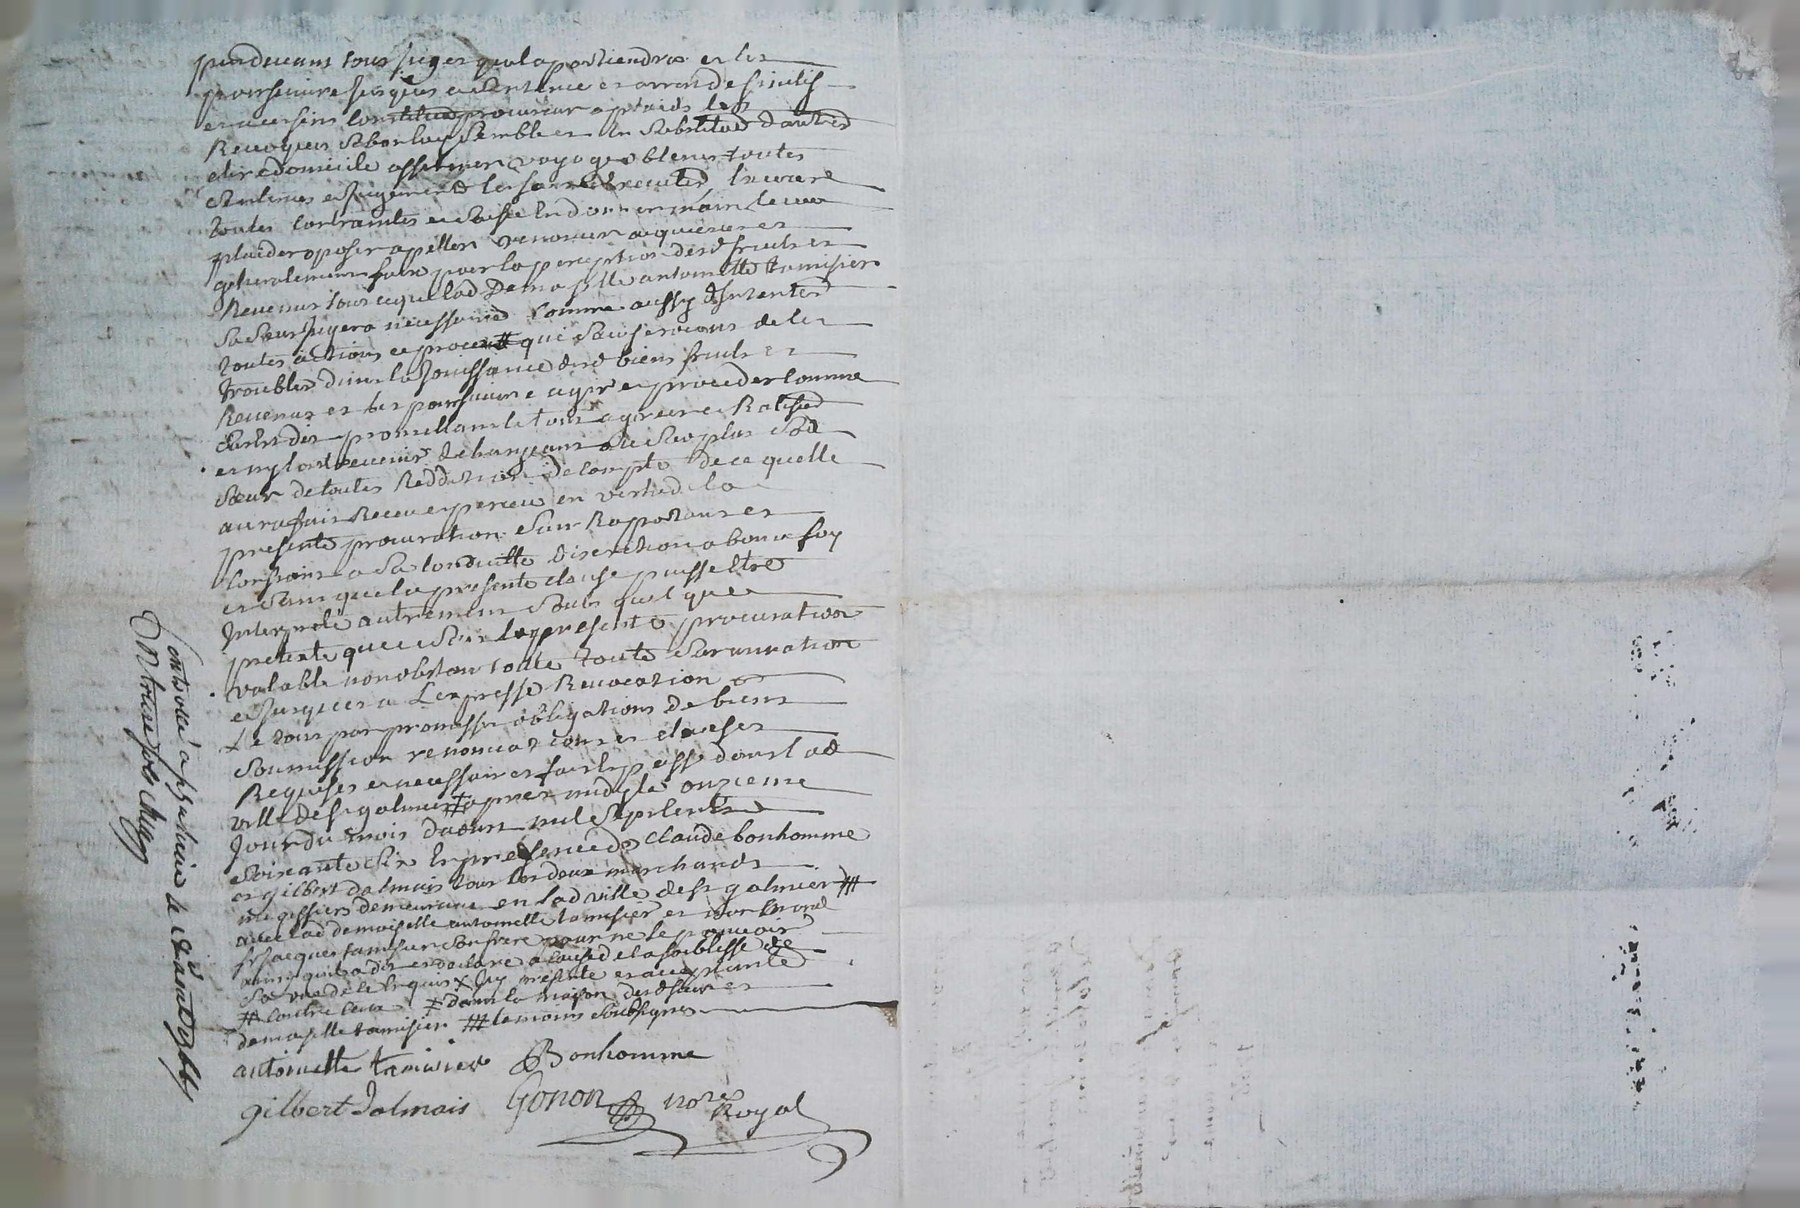 pardevant tous juges quil apartiendra et les
poursuivre jusques a sentence et arrest deffinitif
et a ces fins constitue procureur aplaids les
Revoquer sy bon luy semble et en substitued dautres
elire domicile affirmer voyage obtenir toutes
Sentences et jugements les faire Executer, Exercer
toutes contraintes et saisie En donner main levée
plaider oposer apeller renoncer aquiescer et
generalement faire pour la perception desd fruits et
Revenus tout ce que lad Demoiselle antoinette tamisier
Sa Sœur jugera necessaire comme aussy dIntenter
toutes actions et proces # qui
troubler dans la Jouissance desd biens fruits et
Revenus et les poursuivre agir et proceder comme
dessus promettant le tout agreer et Ratifier
et ny contrevenir dechargeant de plus sad
Sœur de toutes Reddition de compte de ce quelle
aura fait Receu et perceu en vertud la
presente procuration San Raportant et
Confiant a Sa Conduitte discretion et bonne foy
et sans que la presente clause puisse Etre
Interpreté autrement Soubs quelque
pretexte que ce Soit la presente procuration
valable nonobstant toute Surannation
et jusques a Lexpresse Revocation
Le tout par promesse obligations de biens
Soumission renonciations et clauses
Requises et necessaires fait et passé dans lad
ville de st galmier ‡ apres midy le onzieme
Jour du mois daoust mil sept cents
Soixante Six En presence de Claude bonhomme
et gilbert dalmais tous les deux marchands
megissiers demeurant en lad ville de st galmier ⧻
avec lad demoiselle antoinette tamisier et non led
sr jacques tamisier Son frere pour ne le pouvoir
ainsy quil a dit et declaré a cause de la foiblesse de
Sa vue de ce Enquis x presente et acceptante
# contre Eux ‡ dans la maison desd Sieur et
demoiselle tamisier ⧻ temoins Soubsignes
antoinette tamisier Bonhomme
gilbert dalmais Gonon nore Royal
Controllé a st galmier le aout 1766